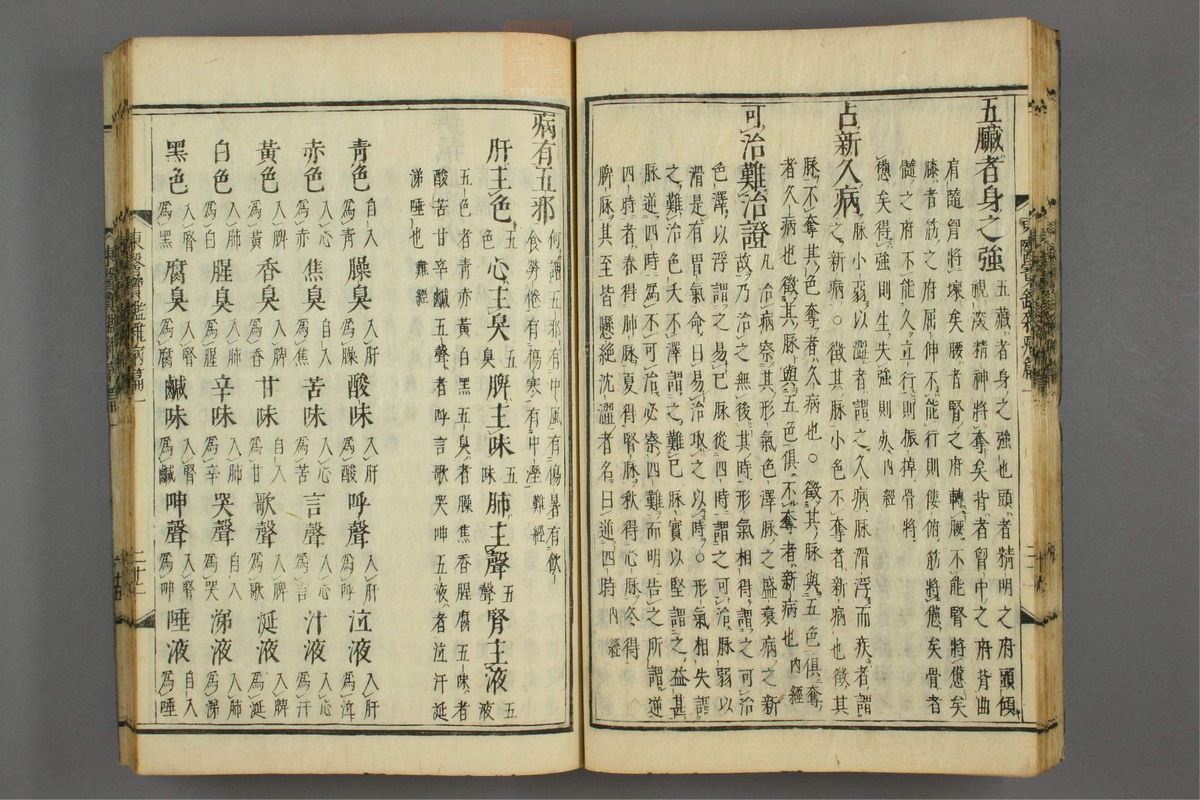 五臟者身之強 五藏者身之強也頭者精明之府頭傾
視深精神將奪矣背者胷中之府背曲
肩隨胷將壞矣腰者腎之府轉搖不能腎將憊矣
膝者筋之府屈伸不能行則僂俯筋將憊矣骨者
髓之府不能久立行則振掉骨將
憊矣得強則生失強則死 內經
占新久病 脉小弱以澁者謂之久病脉滑浮而疾者謂
之新病○徵其脉小色不奪者新病也徵其
脉不奪其色奪者久病也○徵其脉與五色俱奪
者久病也徵其脉與五色俱不奪者新病也 內經
可治難治證 凡治病察其形氣色澤脉之盛衰病之新
故乃治之無後其時形氣相得謂之可治
色澤以浮謂之易已脉從四時謂之可治脉弱以
滑是有胃氣命曰易治取之以時○形氣相失謂
之難治色夭不澤謂之難已脉實以堅謂之益甚
脉逆四時爲不可治必察四難而明告之所謂逆
四時者春得肺脉夏得腎脉秋得心脉冬得
脾脉其至皆懸絶沈澁者名曰逆四時 內經
病有五邪 何謂五邪有中風有傷暑有飮
食勞倦有傷寒有中濕 難經
肝主色 五色 心主臭 五臭 脾主味 五味 肺主聲 五聲 腎主液 五液
五色者青赤黃白黑五臭者臊焦香腥腐五味者
酸苦甘辛鹹五聲者呼言歌哭呻五液者泣汗涎
涕唾也 難經
青色 自入爲青 臊臭 入肝爲臊 酸味 入肝爲酸 呼聲 入肝爲呼 泣液 入肝爲泣
赤色 入心爲赤 焦臭 自入爲焦 苦味 入心爲苦 言聲 入心爲言 汁液 入心爲汗
黃色 入脾爲黃 香臭 入脾爲香 甘味 自入爲甘 歌聲 入脾爲歌 涎液 入脾爲涎
白色 入肺爲白 腥臭 入肺爲腥 辛味 入肺爲辛 哭聲 自入爲哭 涕液 入肺爲涕
黑色 入腎爲黑 腐臭 入腎爲腐 鹹味 入腎爲鹹 呻聲 入腎爲呻 唾液 自入爲唾
東醫寶鑑雜病篇一